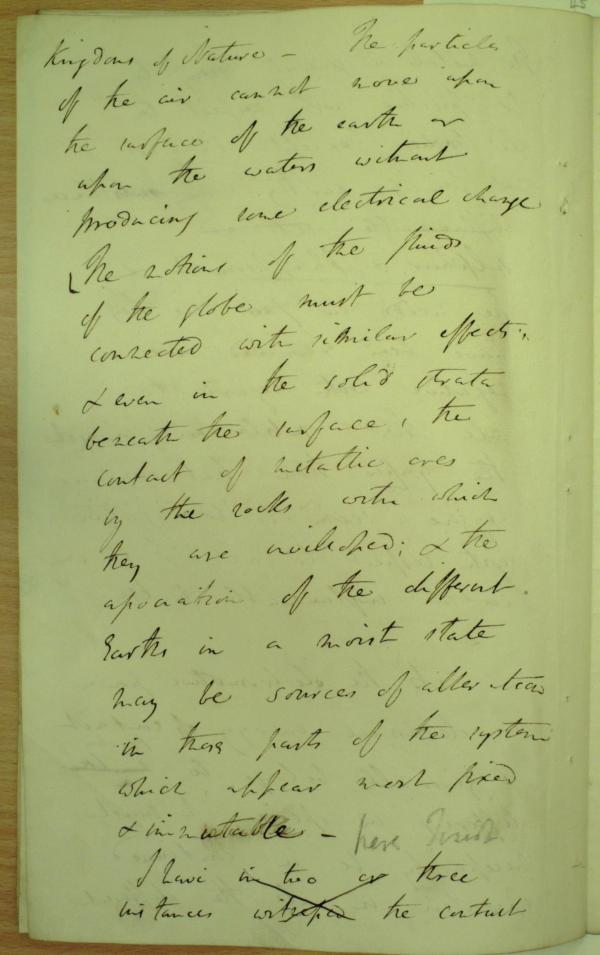 Kingdoms of Nature - The particles
of the air cannot move upon
the surface of the earth or
upon the waters without
producing some electrical change
The motions of the fluids
of the globe must be
connected with similar effects;
& even in the solid strata
beneath the surface, the
contact of metallic ores
by the rocks with which
they are enveloped; & the
association of the different
Earths in a moist state
may be sources of alteration
in those parts of the system
which appear most fixed
& immutable - here
I have in two or three
instances witnessed the contact